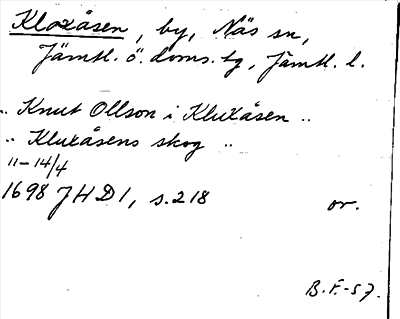 Kloxåsen, by, Näs sn,
Jämtl. ö. doms. tg, Jämtl. l.
.. Knut Ollson i Kluxåsen ..
.. Kluxåsens skog ..
11-14/4
1698 JHD 1, s. 218 or.
B.F.-57.